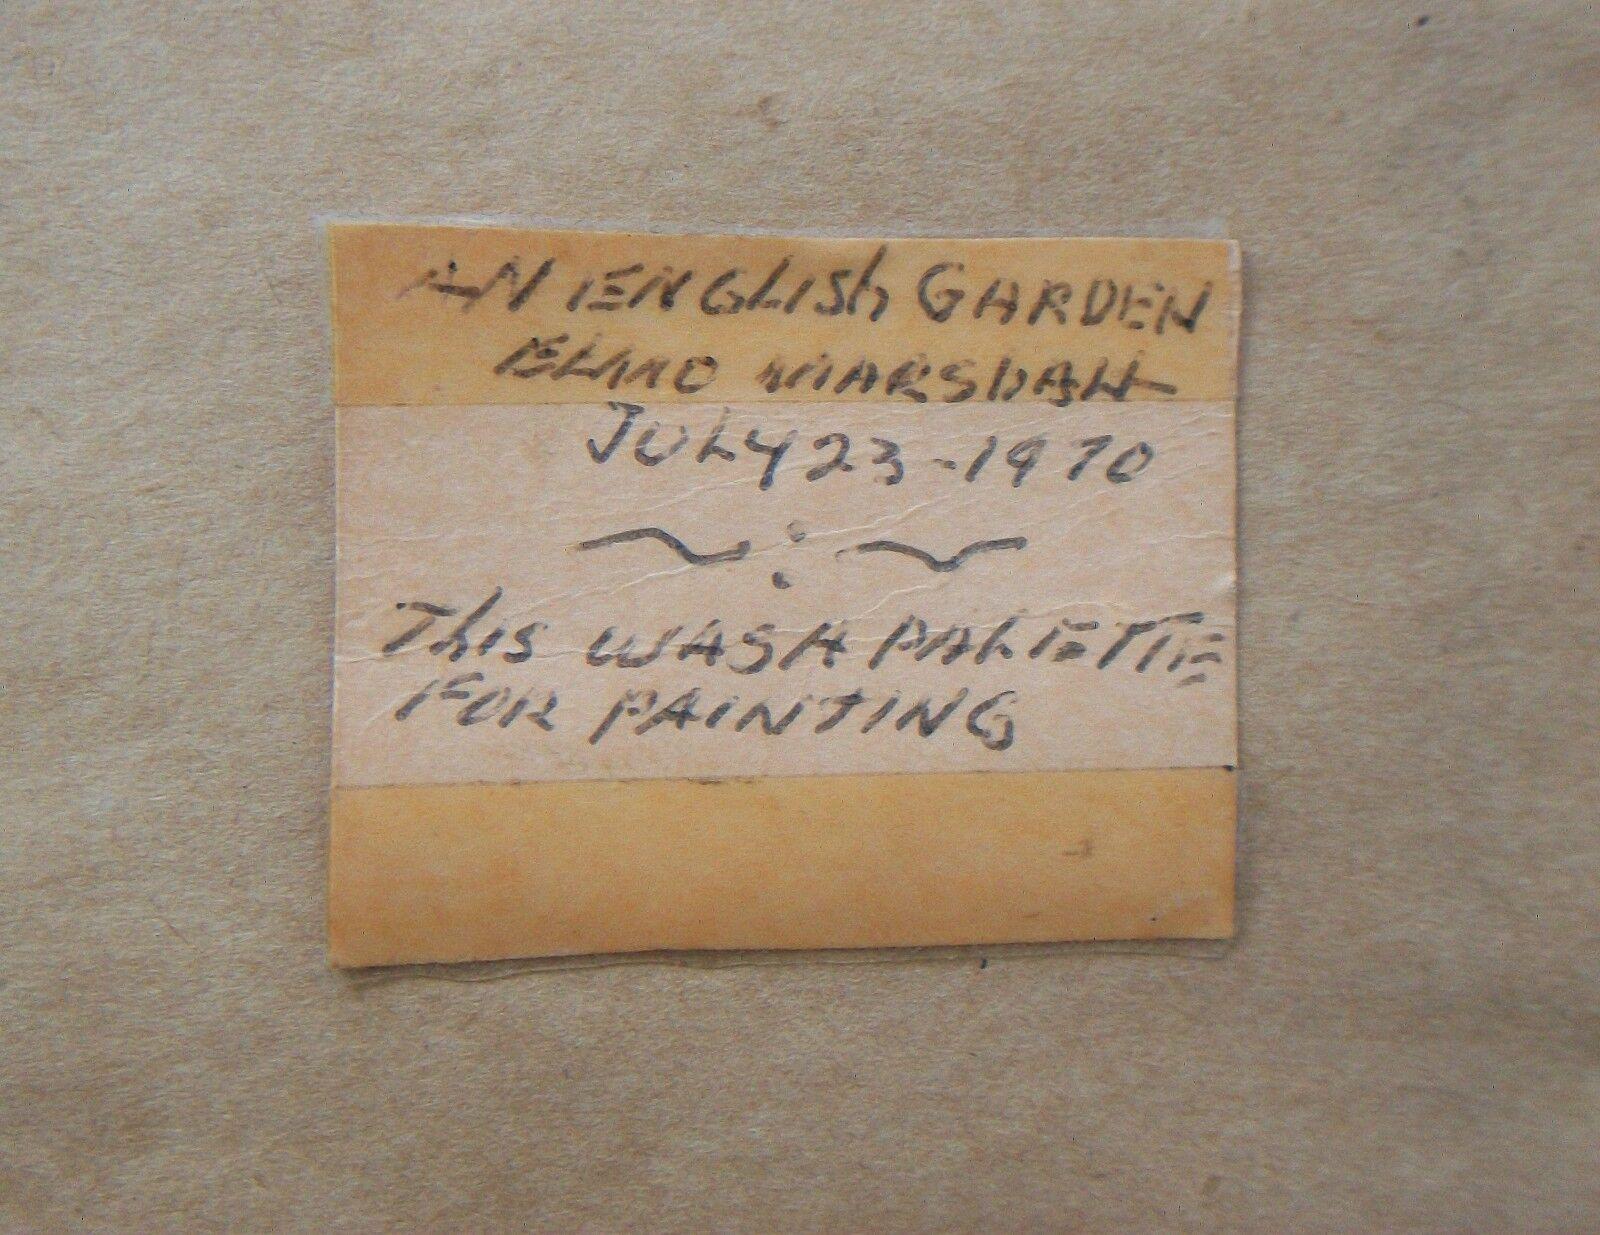 AN ENGLISh GARDEN
ELMO MARSHALL
JULY 23-1970
~:~
ThIS WASA PALETTE
FOR PAINTING